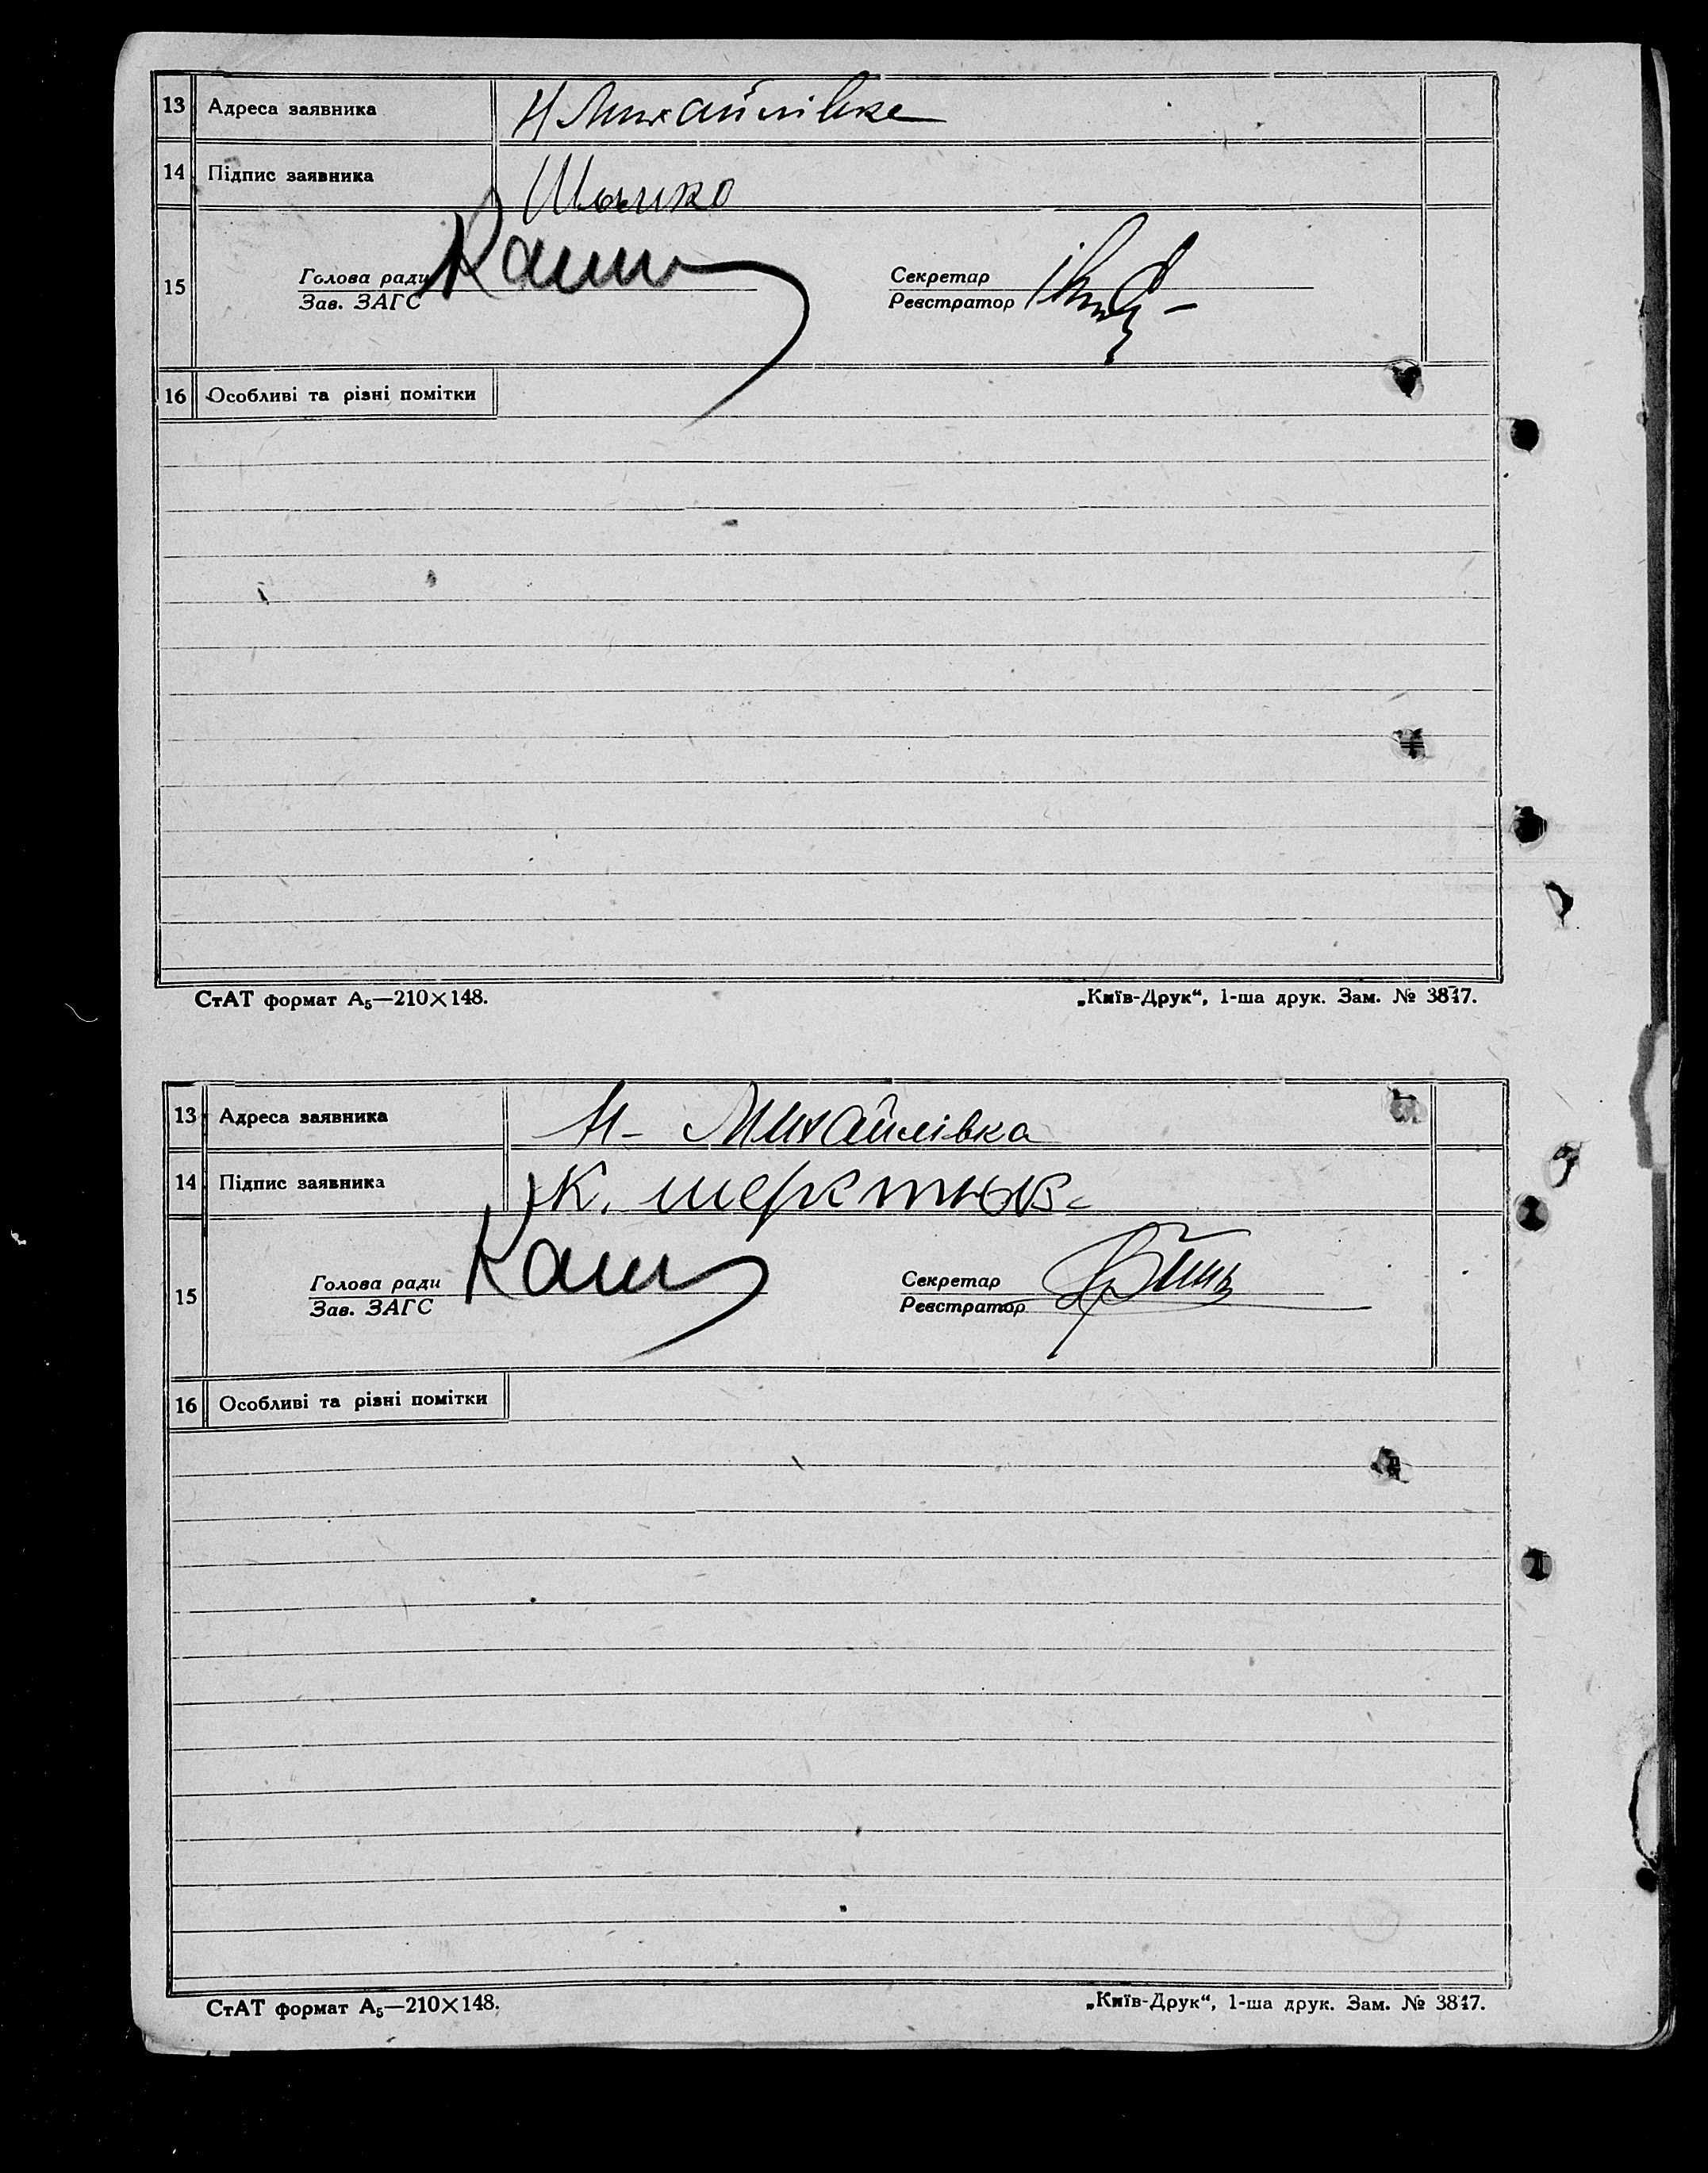 13 Адреса заявника Н Михайлівке
14 Підпис заявника
15 Голова ради Секретар
Зав. ЗАГС Реєстратор
16 Особливі та різні помітки
СтАТ формат А₅—210×148. „Київ-Друк“, 1-ша друк. Зам. № 3817.
13 Адреса заявника Н- Михайлівка
14 Підпис заявника К.
15 Голова ради Секретар
Зав. ЗАГС Реєстратор
16 Особливі та різні помітки
СтАТ формат А₅—210×148. „Київ-Друк“, 1-ша друк. Зам. № 3817.